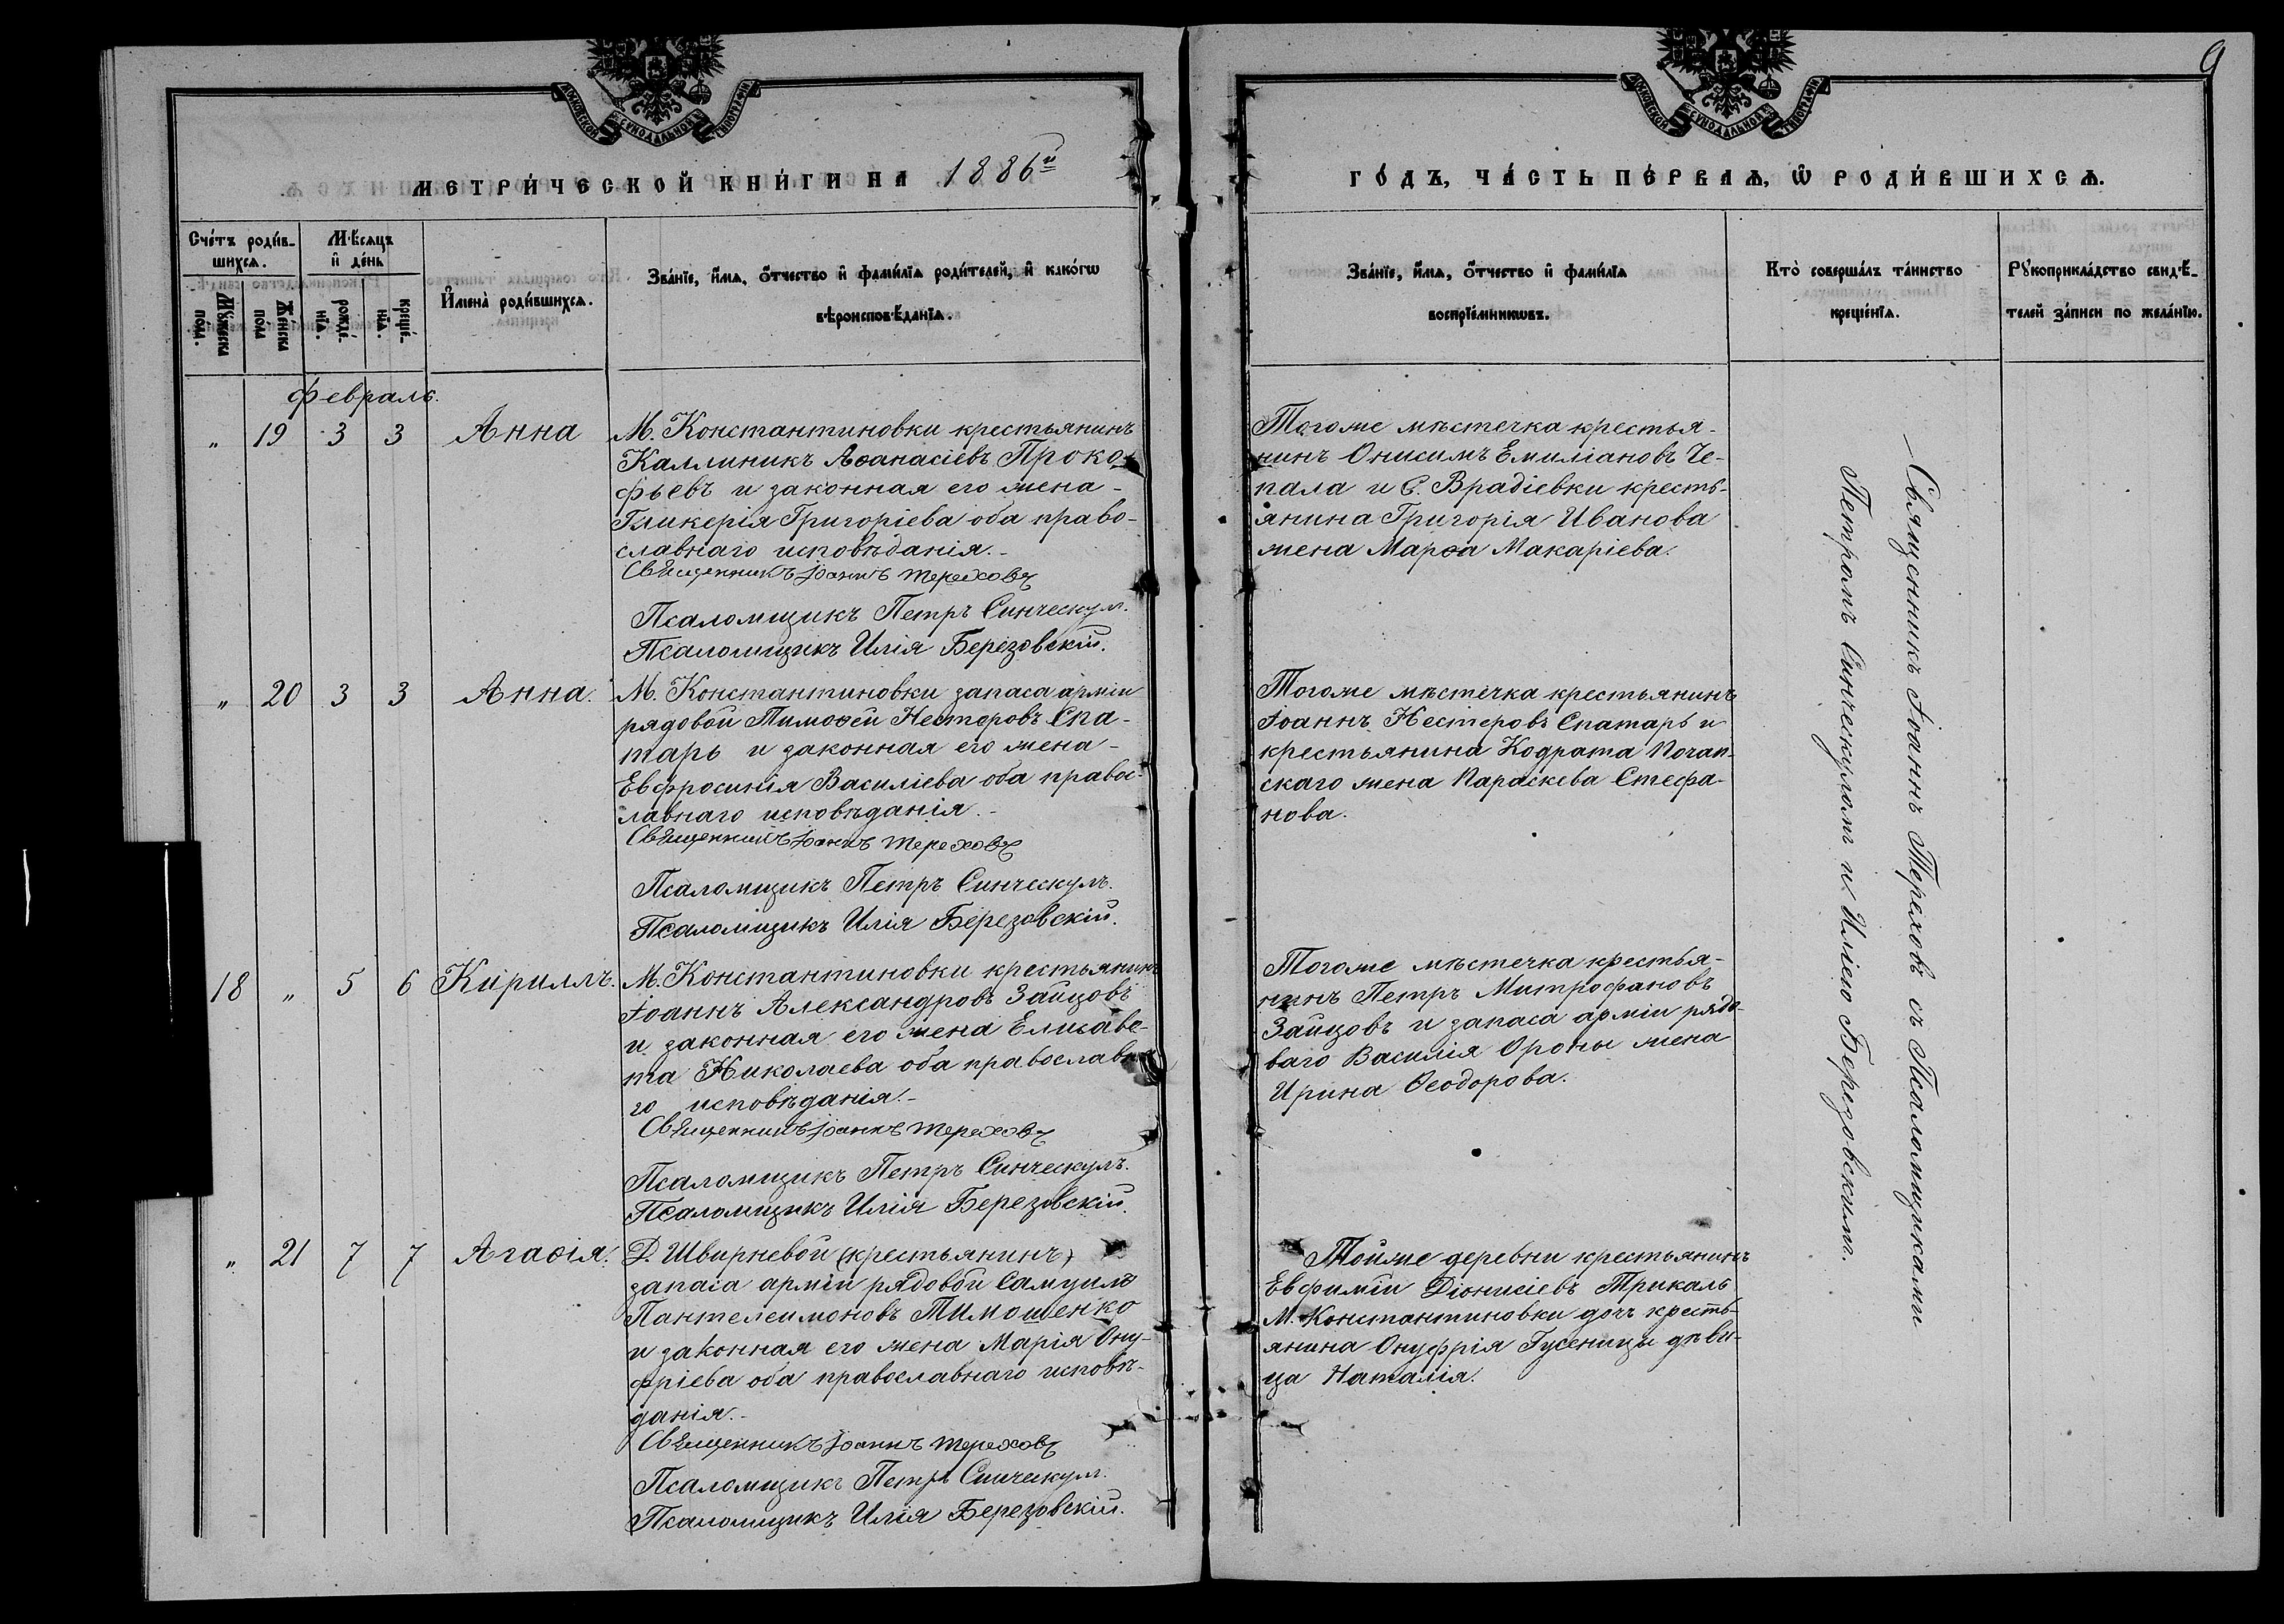 9
МОСКОВСКОЙ СѴНОДАЛЬНОЙ ТИПОГРАФІИ
МОСКОВСКОЙ СѴНОДАЛЬНОЙ ТИПОГРАФІИ
МЕТРИ́ЧЕСКОЙ КНИ́ГИ НА 1886й
ГО́ДЪ, ЧА́СТЬ ПЕ́РВАѦ, Ѡ РОДИ́ВШИХСѦ.
Сче́тъ роди́в-
шихсѧ.
Мꙋжеска
по́ла.
Же́нска
по́ла
Мѣ́сѧцъ
и҆ де́нь
рожде́-
нїѧ.
креще́-
нїѧ.
И҆мена̀ роди́вшихсѧ.
Зва́нїе, и҆́мѧ, ѻ҆́тчество и҆ фами́лїѧ роди́телей, и҆ како́гѡ
вѣроисповѣ́данїѧ.
Зва́нїе, и҆́мѧ, ѻ҆́тчество и҆ фами́лїѧ
воспрїе́мникѡвъ.
Кто̀ соверша́лъ та́инство
креще́нїѧ.
Рꙋкоприкла́дство свидѣ́-
телей за́писи по жела́нїю.
Февраль.
„ 19 3 3 Анна
М. Константиновки крестьянинъ
Каллиникъ Аѳанасіевъ Проко-
фьевъ и законная его жена
Гликерія Григоріева оба право-
славнаго исповѣданія.
Священникъ Іоаннъ Тереховъ
Псаломщикъ Петръ Синческулъ.
Псаломщикъ Илія Березовскій.
Тогоже мѣстечка крестья-
нинъ Онисимъ Емиліановъ Че-
пала и С. Врадіевки кресть-
янина Григорія Иванова
жена Марѳа Макаріева.
„ 20 3 3 Анна.
М. Константиновки запаса арміи
рядовой Тимоѳей Нестеровъ Спа-
тарь и законная его жена
Евфросинія Василіева оба правос-
лавнаго исповѣданія.
Священникъ Іоаннъ Тереховъ
Псаломщикъ Петръ Синческулъ.
Псаломщикъ Илія Березовскій.
Тогоже мѣстечка крестьянинъ
Іоаннъ Нестеровъ Спатарь и
крестьянина Кодрата Почап-
скаго жена Параскева Стефа-
нова.
18 „ 5 6 Кириллъ.
М. Константиновки крестьянинъ
Іоаннъ Александровъ Зайцовъ
и законная его жена Елисаве-
та Николаева оба православна-
го исповѣданія.
Священникъ Іоаннъ Тереховъ
Псаломщикъ Петръ Синческулъ.
Псаломщикъ Илія Березовскій.
Тогоже мѣстечка крестья-
нинъ Петръ Митрофановъ
Зайцовъ и запаса арміи рядо-
ваго Василія Ороны жена
Ирина Ѳеодорова.
„ 21 7 7 Агаѳія.
Д. Швырневой (крестьянинъ)
запаса арміи рядовой Самуилъ
Пантелеимоновъ Тимошенко
и законная его жена Марія Ону-
фріева оба православнаго исповѣ-
данія.
Священникъ Іоаннъ Тереховъ
Псаломщикъ Петръ Синческулъ.
Псаломщикъ Илія Березовскій.
Тойже деревни крестьянинъ
Евфимій Діонисіевъ Трикаль
М. Константиновки дочь кресть-
янина Онуфрія Гусеницы дѣви-
ца Наталія.
Священникъ Іоаннъ Тереховъ съ Псаломщиками
Петромъ Синческуломъ и Иліею Березовскимъ.